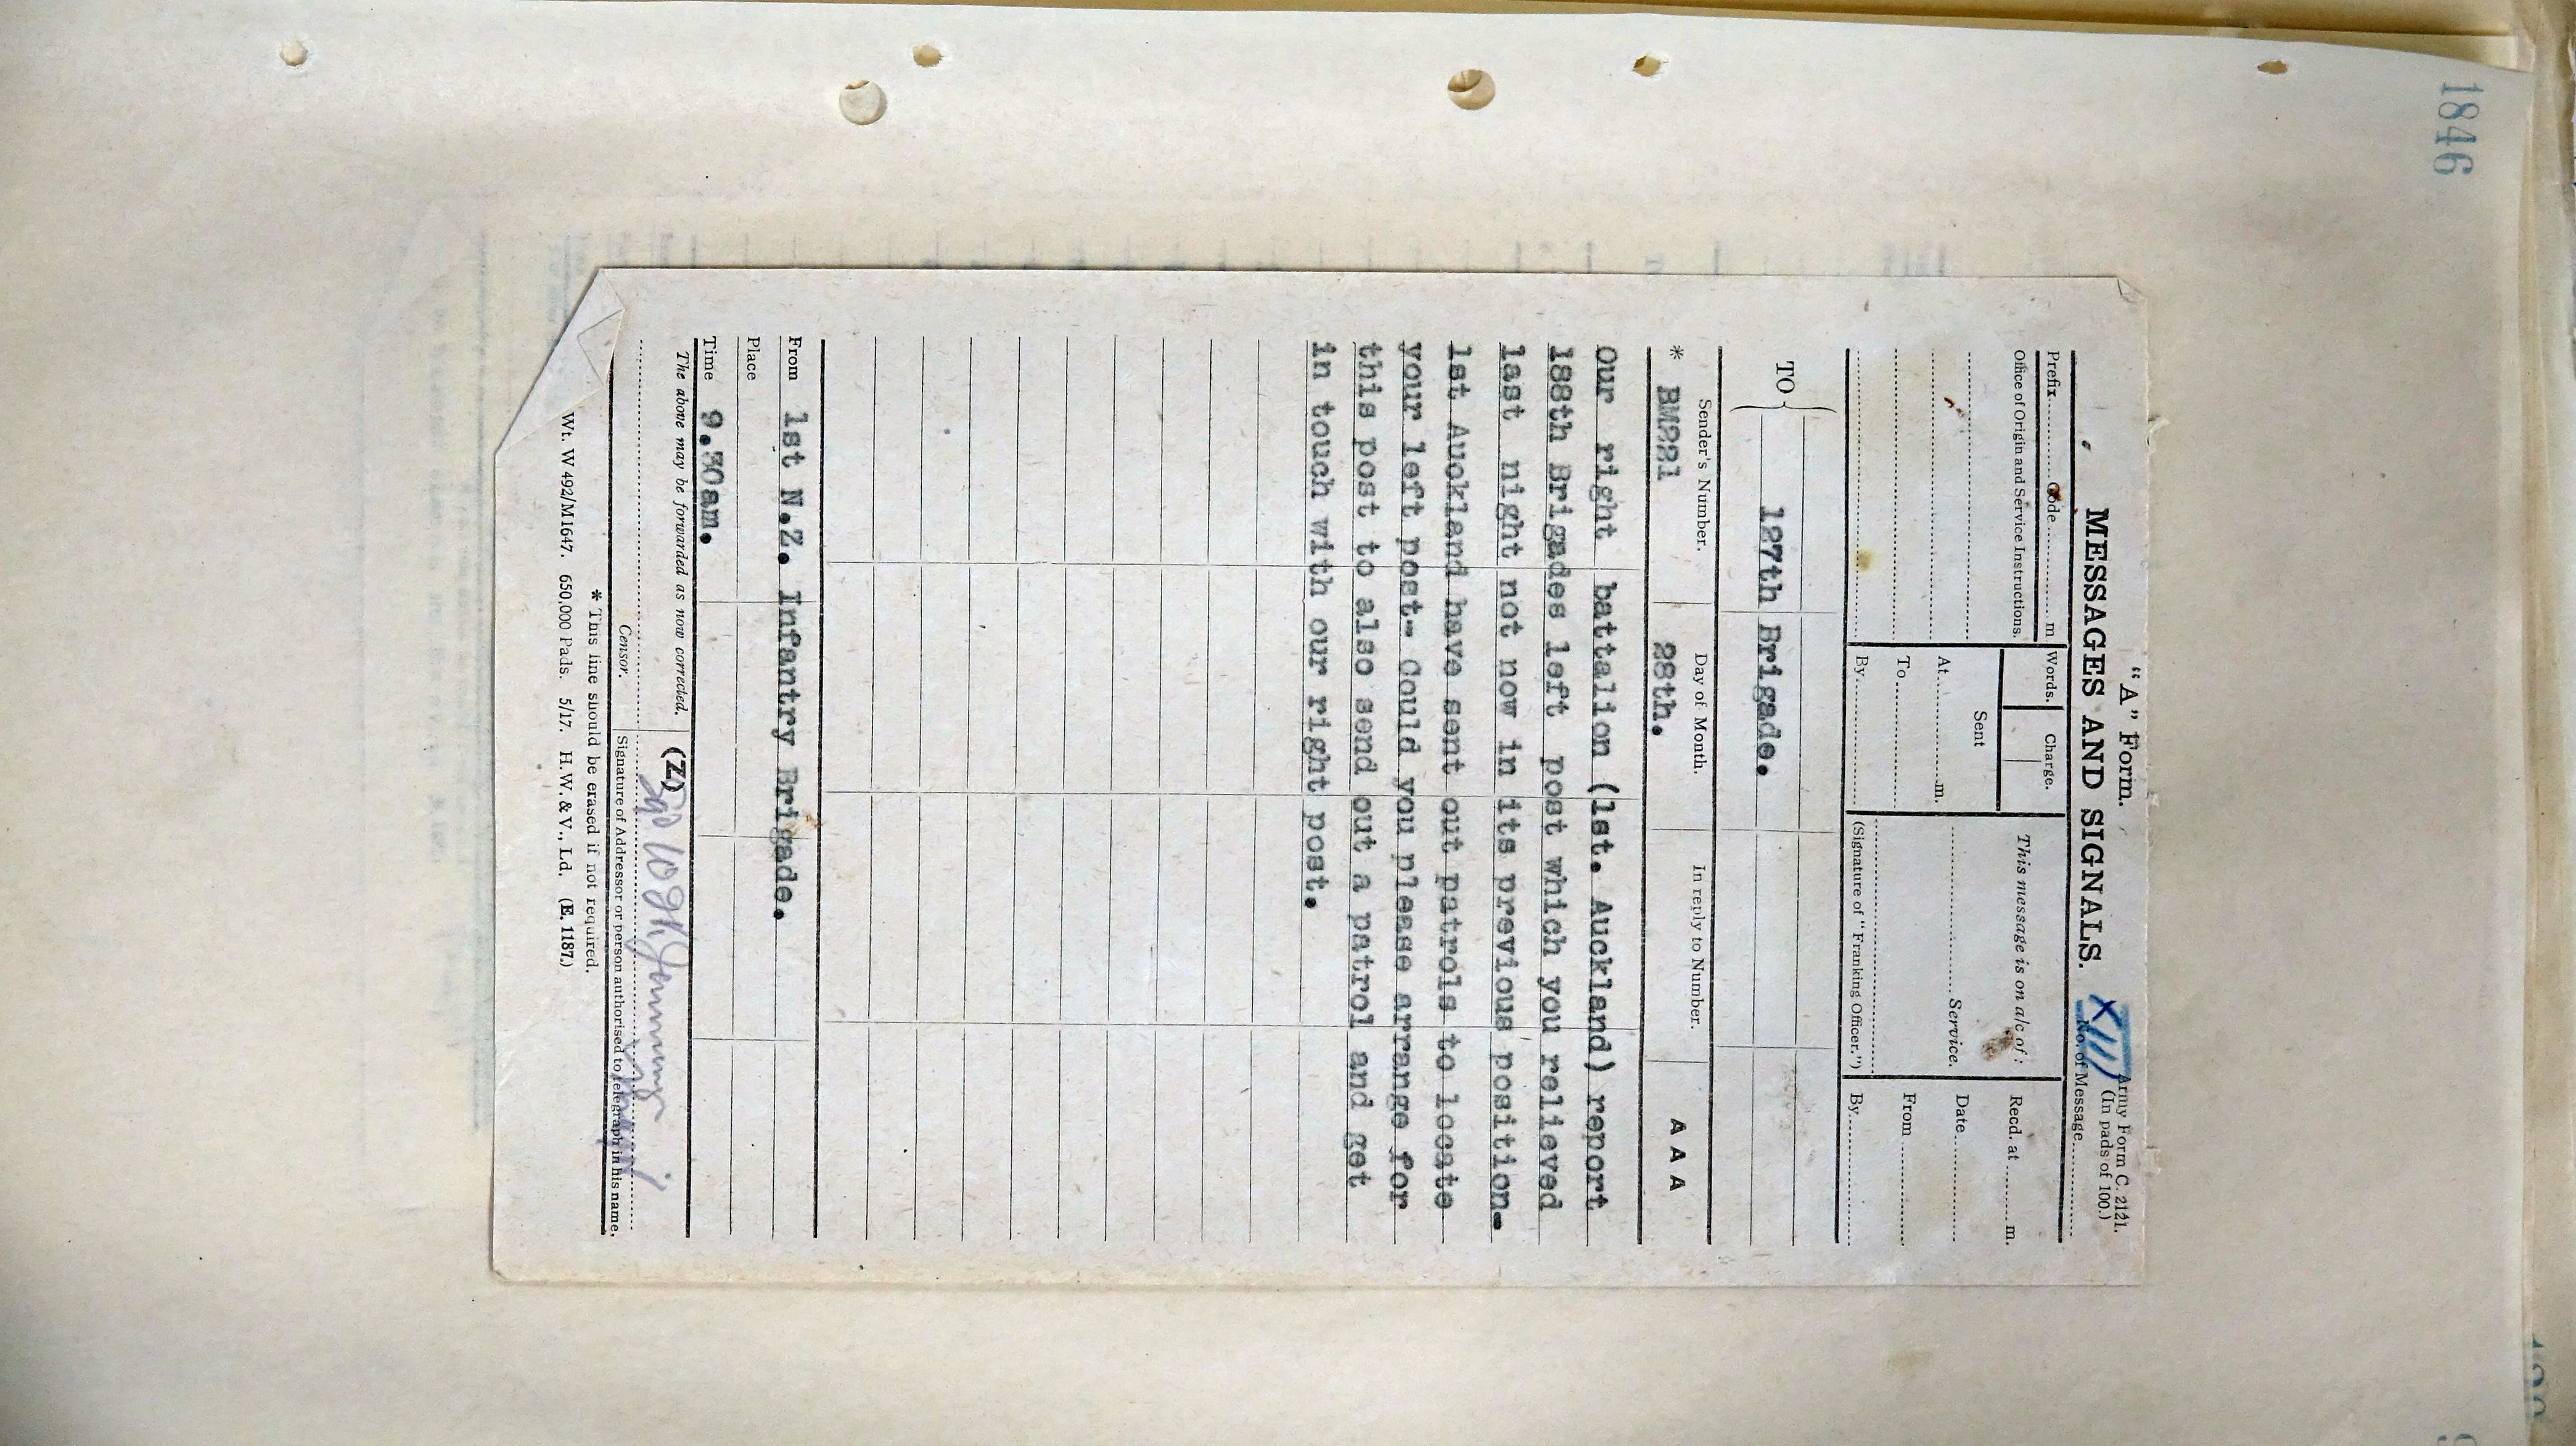 1846
"A" Form.
Army Form C. 2121.
(In pads of 100.)
MESSAGES AND SIGNALS.
XIII
No. of Message
Prefix Code m
Words. Charge.
This message is on a/c of :
Recd. at m.
Office of Origin and Service Instructions.
Sent
Service.
Date
At m.
To
From
By
(Signature of "Franking Officer.")
By
TO
127th Brigade.
Sender's Number. Day of Month. In reply to Number.
* BM221 28th. A A A
Our right battalion (1st. Auckland) report
188th Brigades left post which you relieved
last night not now in its previous position-
1st Auckland have sent out patrols to locate
your left post- Could you please arrange for
this post to also send out a patrol and get
in touch with our right post.
From 1st N.Z. Infantry Brigade.
Place
Time 9.30am.
The above may be forwarded as now corrected. (Z)
Sgd Jennings
Censor. Signature of Addressor or person authorised to telegraph in his name,
* This line should be erased if not required.
Wt. W 492/M1647. 650,000 Pads. 5/17. H.W. & V., Ld. (E. 1187.)